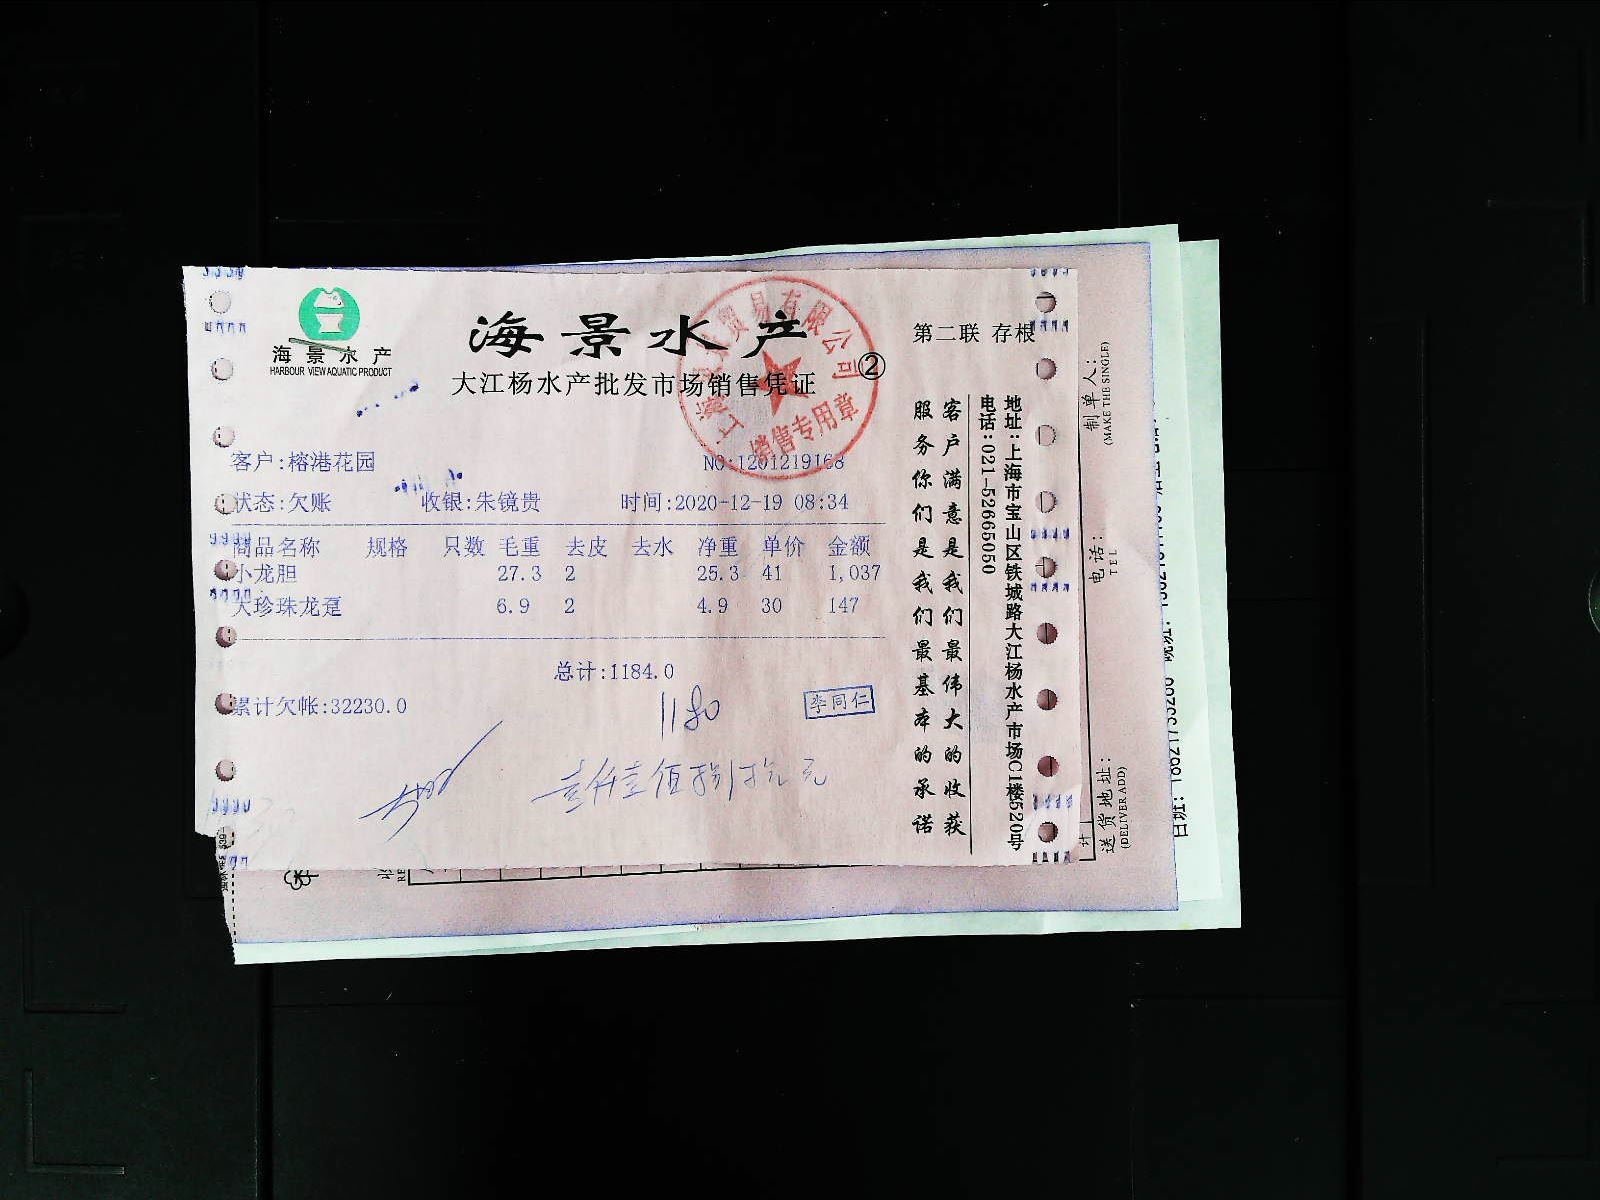 海景水产
HARBOUR VIEW AQUATIC PRODUCT
海景水产
大江杨水产批发市场销售凭证
②
第二联 存根
贸易有限公司
销售专用章
客户:榕港花园
NO:1201219168
状态:欠账 收银:朱镜贵 时间:2020-12-19 08:34
商品名称 规格 只数 毛重 去皮 去水 净重 单价 金额
小龙胆 27.3 2 25.3 41 1,037
大珍珠龙趸 6.9 2 4.9 30 147
总计:1184.0
累计欠帐:32230.0
1180
李同仁
壹仟壹佰捌拾元
客户满意是我们最伟大的收获
服务你们是我们最基本的承诺
地址:上海市宝山区铁城路大江杨水产市场C1楼520号
电话:021-52665050
制单人:
(MAKE THE SINGLE)
电话:
TEL
送货地址:
(DELIVER ADD)